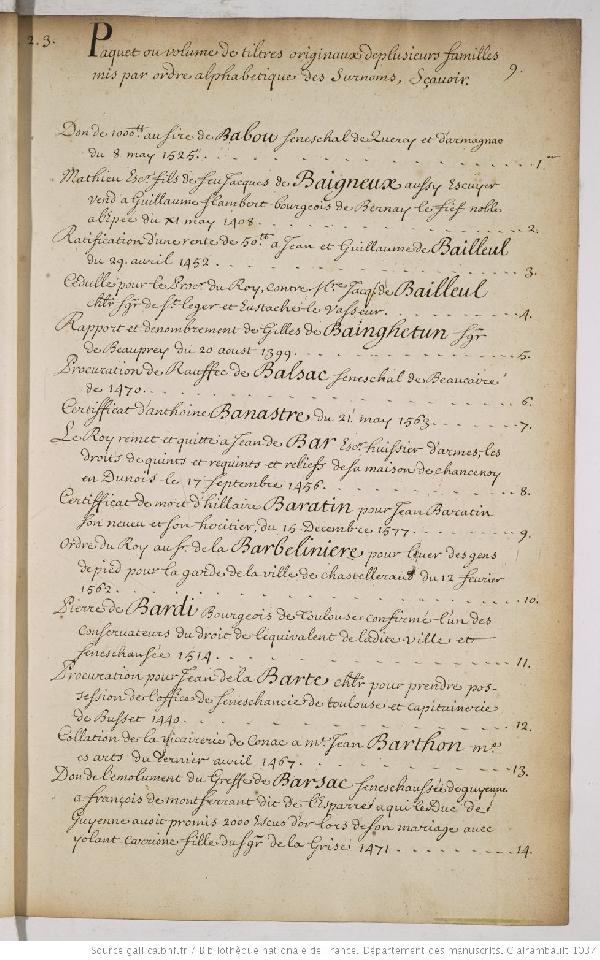 2.3.
Paquet ou volume de tiltres originaux de plusieurs familles
mis par ordre alphabetique des Surnoms, Sçauoir.
9.
Don de 1000tt au sire de Babou seneschal de Quercy et d'armagnac
du 8 may 1525. 1
Mathieu Escr fils de feu Jacques de Baigneux aussy Escuyer
vend a Guillaume flambert bourgeois de Bernay le fief noble
al'epée du XI may 1408. 2.
Ratification d'une rente de 50tt a Jean et Guillaume de Bailleul
du 29. avril 1452. 3.
Cedulle pour le Procr du Roy, contre Mre Jacqs de Bailleul
chlr sgr de St leger et Eustache le Vasseur. 4.
Rapport et denombrement de Gilles de Bainghetun sgr
de Beauprey du 20 aoust 1399. 5.
Procuration de Rauffec de Balsac seneschal de Beaucaire
de 1470. 6.
Certifficat d'anthoine Banastre du 21 may 1563. 7.
Le Roy remet et quitte a Jean de Bar Escr huissier d'armes, les
droits de quints et requints et reliefs de sa maison de chancenoy
en Dunois le 17 septembre 1456. 8.
Certifficat de mort d'hillaire Baratin pour Jean Baratin
son neueu et son heritier, du 15 Decembre 1577. 9.
Ordre du Roy au Sr. de la Barbeliniere pour leuer des gens
de pied pour la garde de la ville de chastelleraud du 12 feurier
1562. 10.
Pierre de Bardi Bourgeois de Toulouse confirmé l'un des
Conseruateurs du droit de l'équivalent de ladite ville et
seneschaussée 1514. 11.
Procuration pour Jean de la Barte chlr pour prendre pos-
session de l'office de seneschancie de toulouse et capitainerie
de Busset 1440. 12.
Collation de la vicairerie de Conac a mr. Jean Barthon me.
es arts du dernier avril 1467. 13.
Don de l'emolument du Greffe de Barsac seneschaussée de guyenne
a françois de montferrant dit de l'Isparre aqui le Duc de
Guyenne auoit promis 2000 Escus d'or lors de son mariage auec
yolant fille du sgr de la Grise 1471. 14.
Source gallica.bnf.fr / Bibliothèque nationale de France. Département des manuscrits. Clairambault 1037